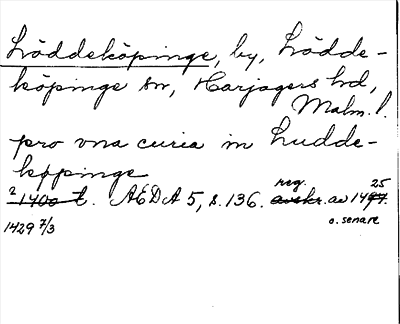 Löddeköpinge, by, Lödde-
köpinge sn, Harjagers hd,
Malm. l.
pro vna curia in Ludde-
køpinge
2 1400 t. AEDA 5, s. 136. reg. avskr. av 1497. 25
1429 7/3
o. senare